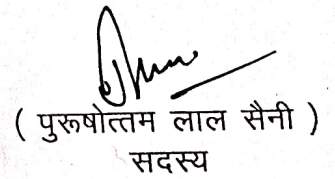 ( पुरूषोत्तम लाल सैनी )
सदस्य